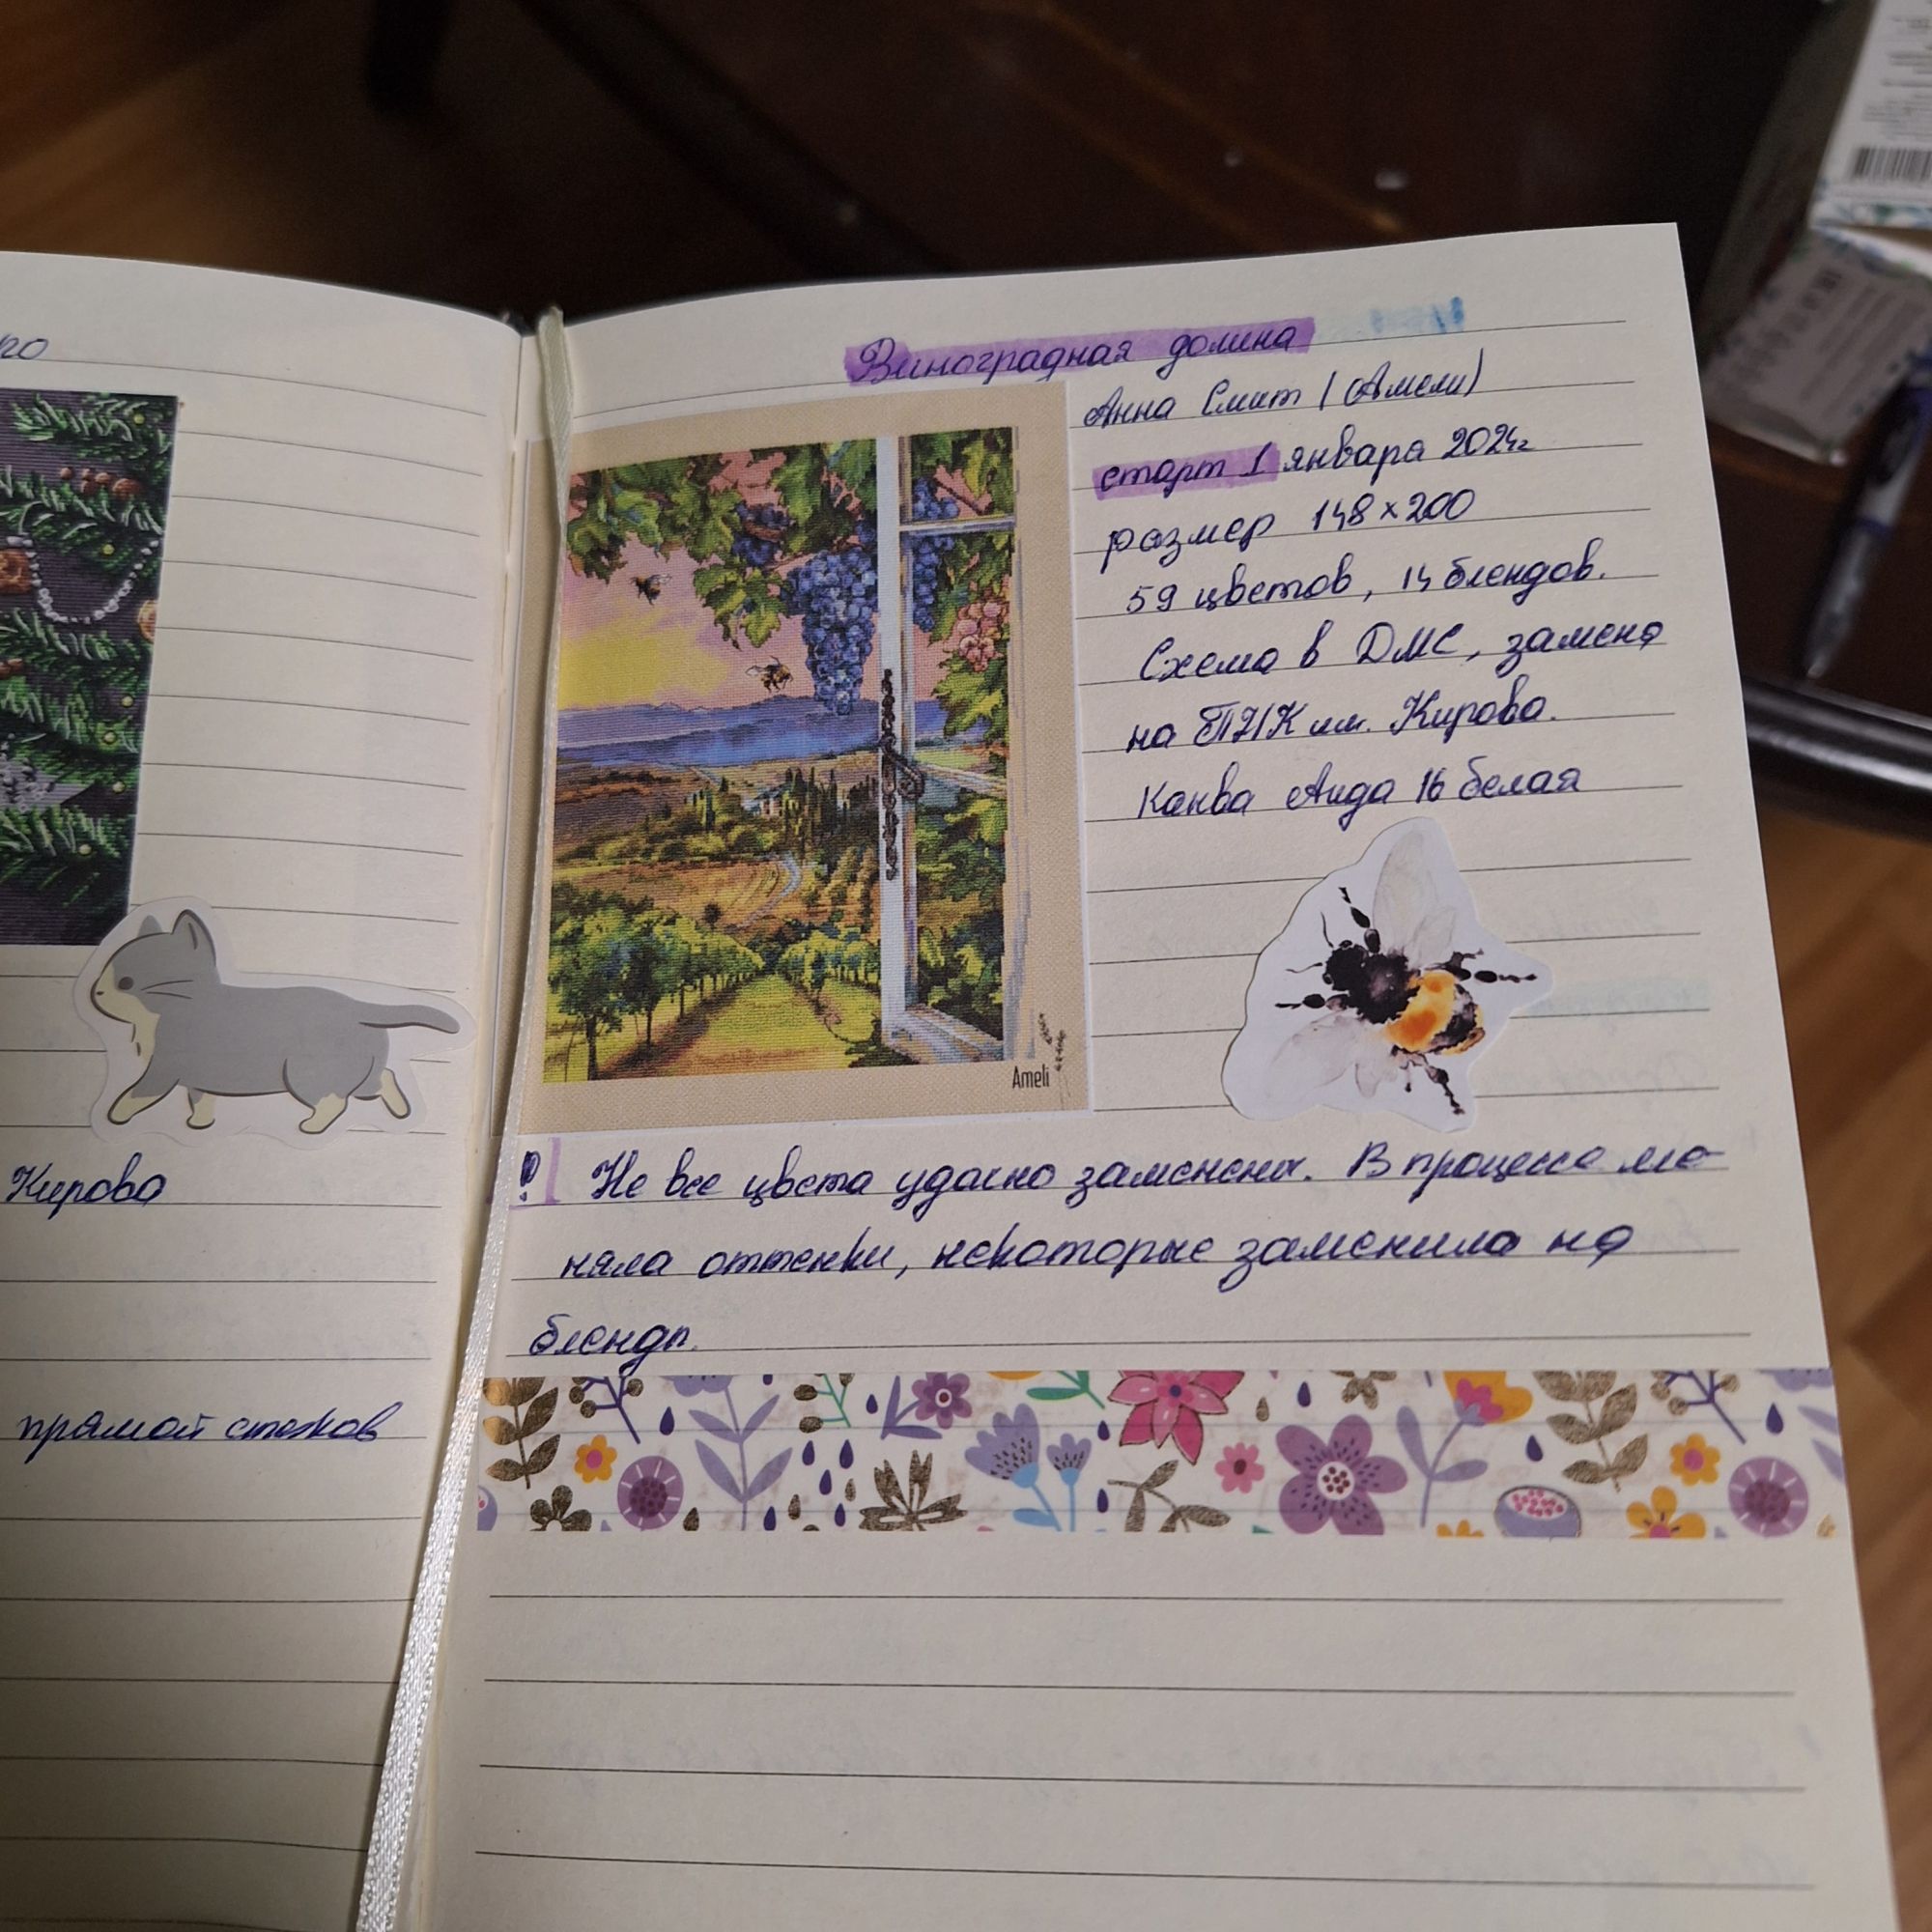 Кирово
прямой стежков
Виноградная долина
Анна Смит / (Амели)
старт 1 января 2024г
размер 148×200
59 цветов, 14 блендов.
Схема в ДМС, замена
на ПНК им. Кирова.
Канва Аида 16 белая
Ameli
! Не все цвета удачно заменены. В процессе ме-
няла оттенки, некоторые заменила на
бленды.